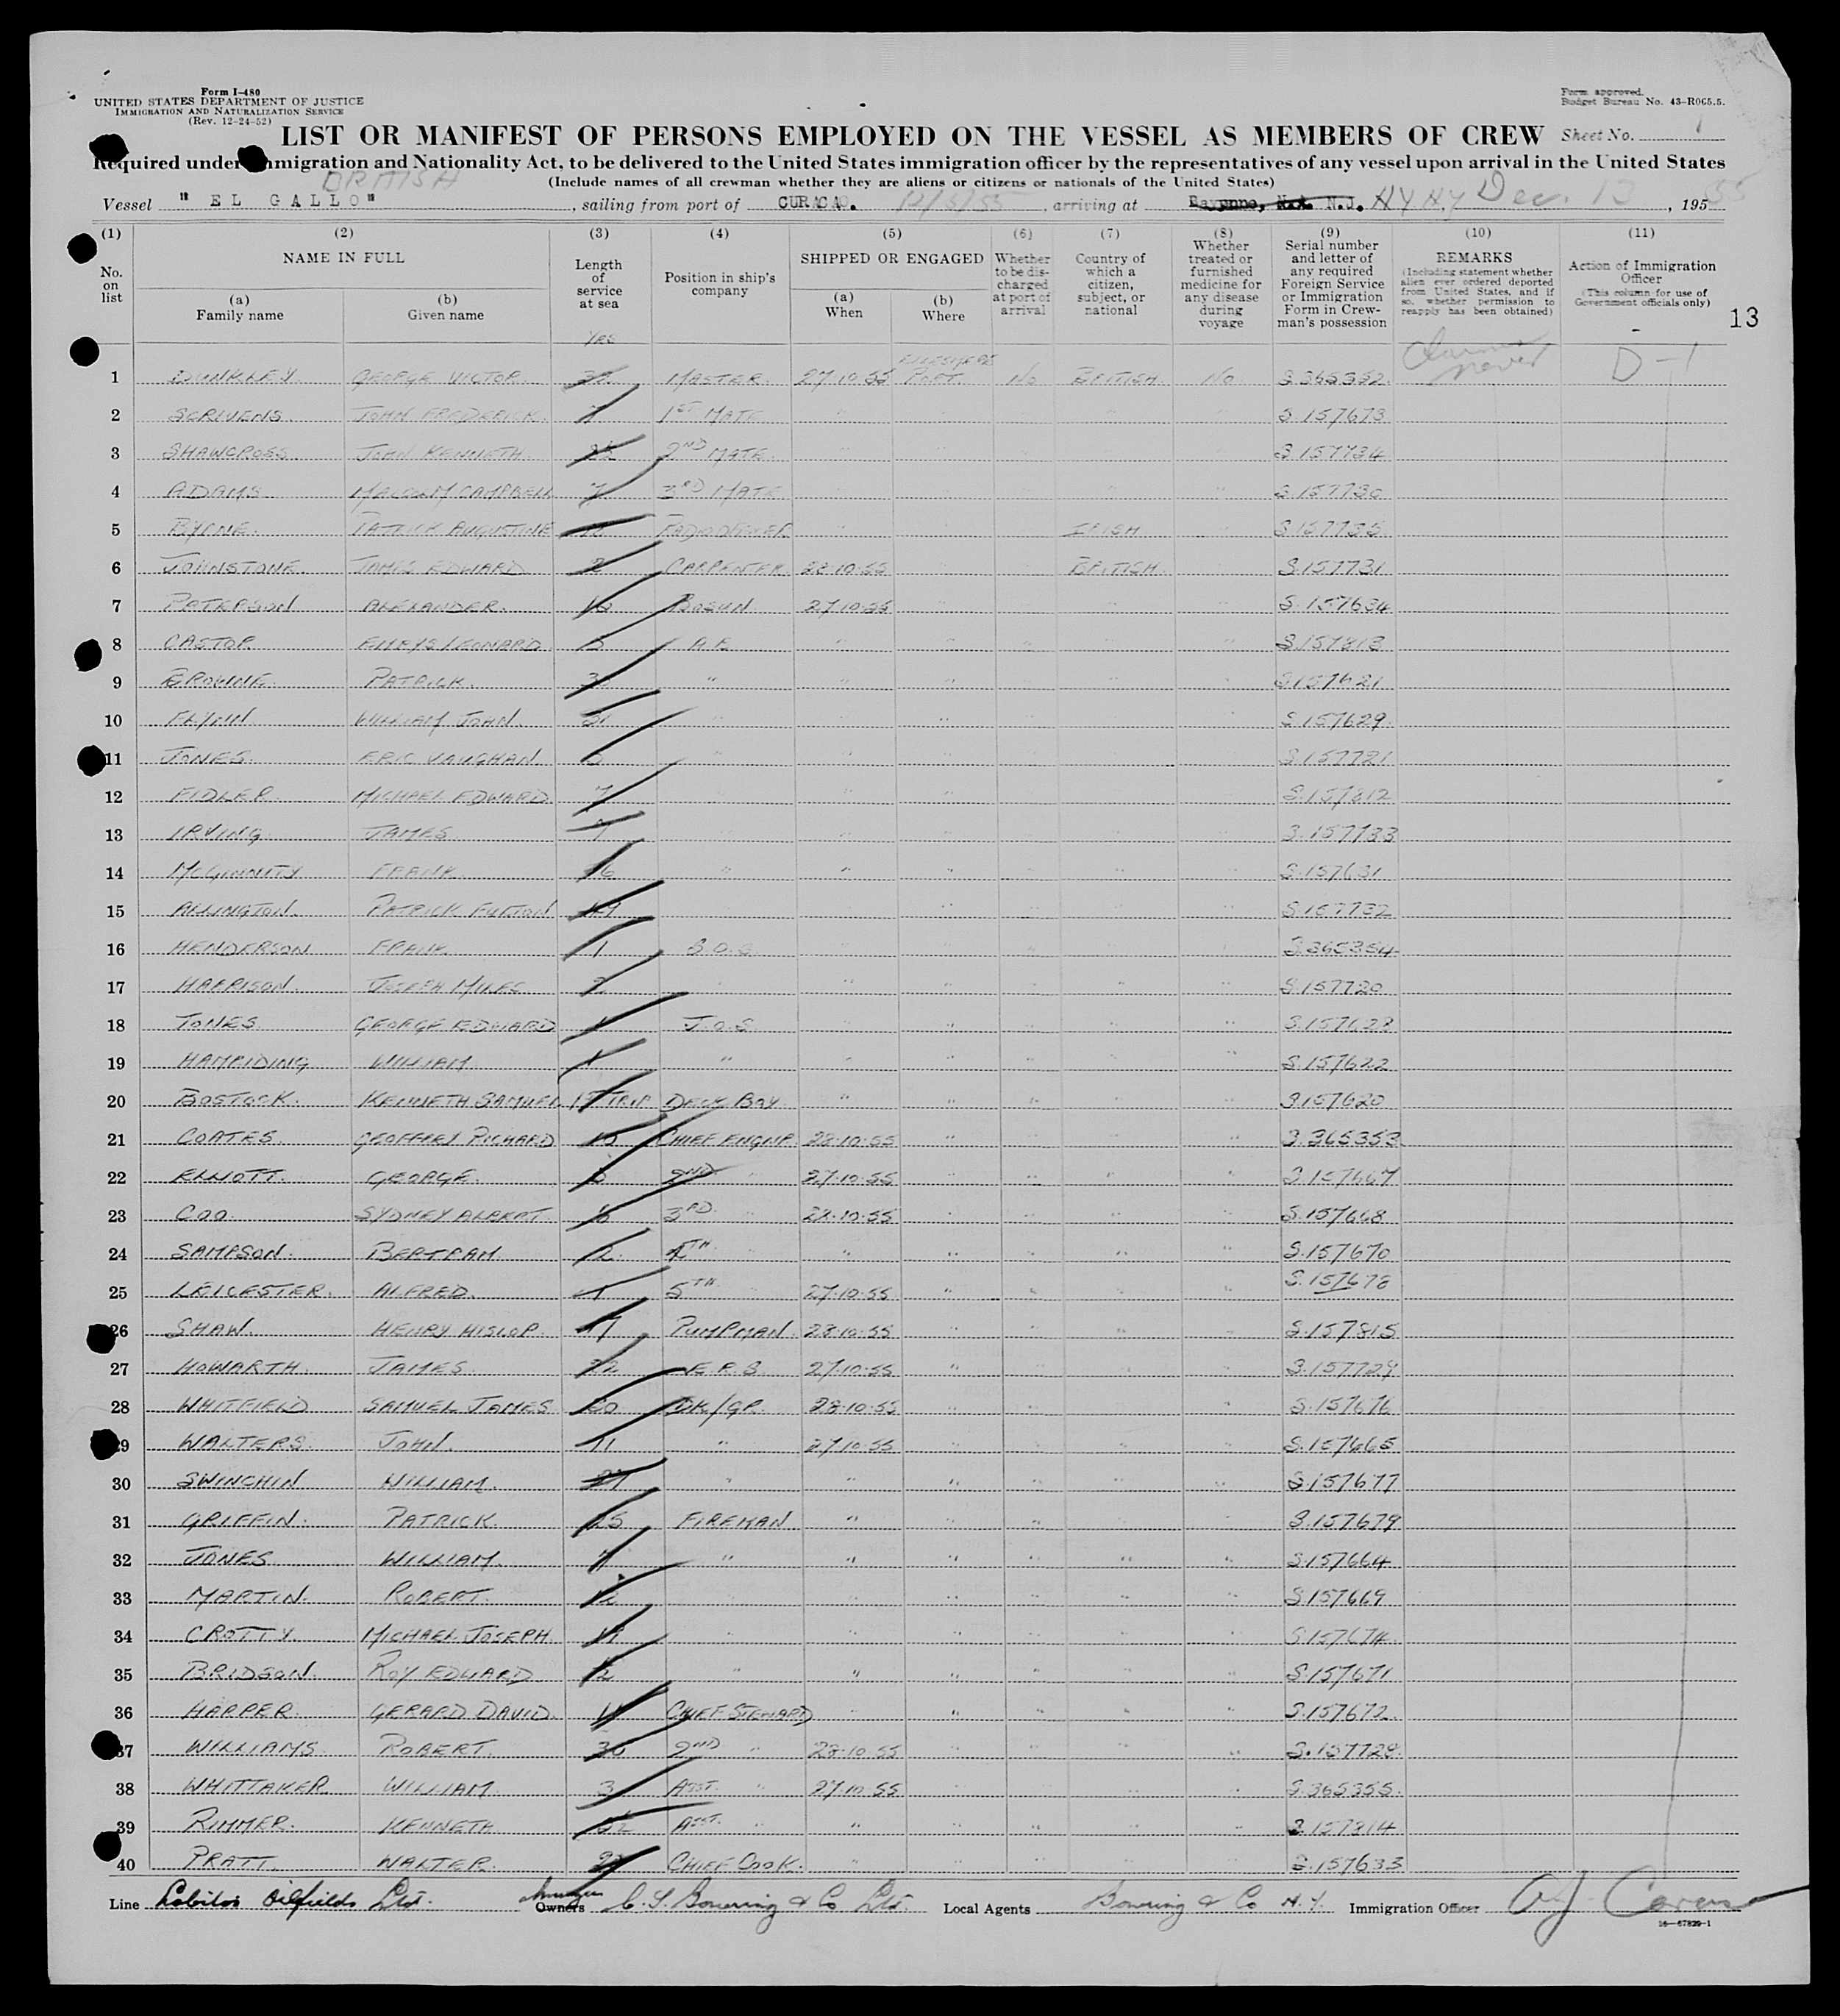 Form I-480
UNITED STATES DEPARTMENT OF JUSTICE
IMMIGRATION AND NATURALIZATION SERVICE
(Rev. 12-24-52)
Form approved.
Budget Bureau No. 43-R065.5.
LIST OR MANIFEST OF PERSONS EMPLOYED ON THE VESSEL AS MEMBERS OF CREW
Sheet No. 1
Required under Immigration and Nationality Act, to be delivered to the United States immigration officer by the representatives of any vessel upon arrival in the United States
(Include names of all crewman whether they are aliens or citizens or nationals of the United States)
BRITISH
Vessel "EL GALLO", sailing from port of CURACAO. 12/5/55, arriving at Bayonne, N.J. NY NY Dec. 13, 1955
(1) No. on list
(2) NAME IN FULL
(a) Family name (b) Given name
(3) Length of service at sea
(4) Position in ship's company
(5) SHIPPED OR ENGAGED
(a) When (b) Where
(6) Whether to be discharged at port of arrival
(7) Country of which a citizen, subject, or national
(8) Whether treated or furnished medicine for any disease during voyage
(9) Serial number and letter of any required Foreign Service or Immigration Form in Crewman's possession
(10) REMARKS (Including statement whether alien ever ordered deported from United States, and if so, whether permission to reapply has been obtained)
(11) Action of Immigration Officer (This column for use of Government officials only)
13
YRS
1 DUNKLEY. GEORGE VICTOR. MASTER. 27.10.55 ELLESMERE PORT. No BRITISH. No S 365352. never D-1
2 SCRIVENS. JOHN FREDERICK. 7 1ST MATE S.157673
3 SHAWCROSS. JOHN KENNETH. 2ND MATE. S.157734
4 ADAMS. MALCOLM CAMPBELL 7 3RD MATE S.157730
5 BYRNE. PATRICK AUGUSTINE RADIO OFFICER " IRISH S.157735
6 JOHNSTONE. JAMES EDWARD 2 CARPENTER 28.10.55 BRITISH. S.157731
7 PATERSON ALEXANDER. BOSUN 27.10.55 S.157634
8 CASTOR EMRYS LEONARD. 5 A.B. " " S.157813
9 BROWNE. PATRICK. " " " S157621
10 FLYNN. WILLIAM JOHN. " " " S.157629.
11 JONES. ERIC VAUGHAN. " " " S.157721
12 FIDLER. MICHAEL EDWARD. 7 " " " S.157812
13 IRVING. JAMES. 7 " " " S.157733
14 McGINNITY FRANK. 16 " " " S.157631
15 ARLINGTON. PATRICK FULTON " " " S.157732
16 HENDERSON FRANK. 1 S.O.S. " " S.365354
17 HARRISON. JOSEPH MILES 2 " " " S.157720
18 JONES. GEORGE EDWARD 1 J.O.S. " " S.157628
19 HAMPIDING WILLIAM. 1 " " " S.157622
20 BOSTOCK. KENNETH SAMUEL 1ST TRIP DECK BOY. " " S.157620
21 COATES. GEOFFREY RICHARD CHIEF ENGNR. 28.10.55 " S.365353
22 ELLIOTT. GEORGE. 2ND " 27.10.55 " S.157667
23 COO. SYDNEY ALBERT. 3RD. " 28.10.55 " S.157668
24 SAMPSON. BERTRAM. 2. 4TH " " " S.157670
25 LEICESTER. ALFRED. 1 5TH " 27.10.55 " S.157678
26 SHAW. HENRY HISLOP. 17 PUMPMAN. 28.10.55 " S.157815
27 HOWARTH. JAMES. 22 E.R.S. 27.10.55 " S.157729
28 WHITFIELD SAMUEL JAMES 20 DK/GR. 28.10.55 " S.157676
29 WALTERS. JOHN. 11 " 27.10.55 " S.157665
30 SWINCHIN WILLIAM. 27 " " " S.157677
31 GRIFFIN. PATRICK. 25 FIREMAN " " S.157679
32 JONES WILLIAM. " " " S.157664
33 MARTIN. ROBERT. 12 " " " S.157669
34 CROTTY. MICHAEL JOSEPH. " " " S.157674.
35 BRIDSON. ROY EDWARD 12 " " " S.157671
36 HARPER. GERARD DAVID. 11 CHIEF STEWARD " " S.157672.
37 WILLIAMS. ROBERT. 30 2ND " 28.10.55 " S.157728.
38 WHITTAKER. WILLIAM. 3 ASST. " 27.10.55 " S.365355.
39 RIMMER. KENNETH ASST. " " " S.157814
40 PRATT. WALTER. CHIEF COOK. " " S.157633
Line Lobitos Oilfields Ltd. Owners C. T. Bowring & Co Ltd. Local Agents Bowring & Co N.Y. Immigration Officer
16—67829-1